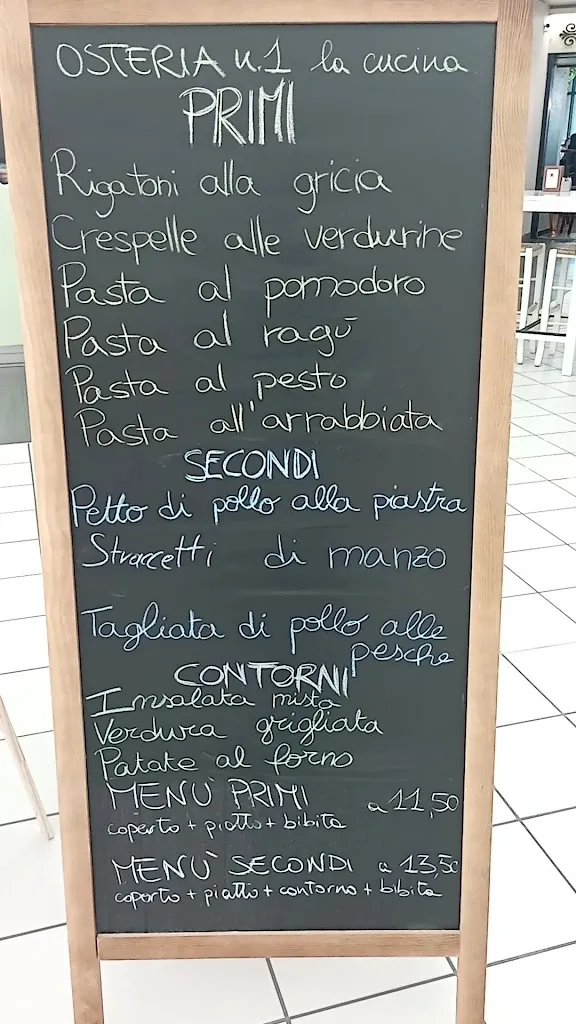 OSTERIA n.1 la cucina
PRIMI
Rigatoni alla gricia
Crespelle alle verdurine
Pasta al pomodoro
Pasta al ragù
Pasta al pesto
Pasta all'arrabbiata
SECONDI
Petto di pollo alla piastra
Straccetti di manzo
Tagliata di pollo alle
pesche
CONTORNI
Insalata mista
Verdura grigliata
Patate al forno
MENÙ PRIMI a 11,50
coperto + piatto + bibita
MENÙ SECONDI a 13,50
coperto + piatto + contorno + bibita